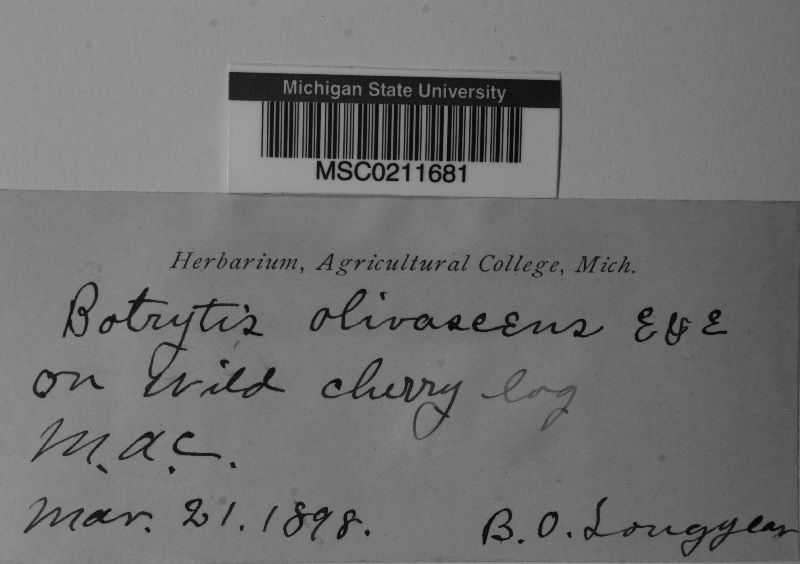 Michigan State University
MSC0211681
Herbarium, Agricultural College, Mich.
Botrytis olivascens E & E
on wild cherry log
M.A.C.
Mar. 21. 1898. B. O. Longyear